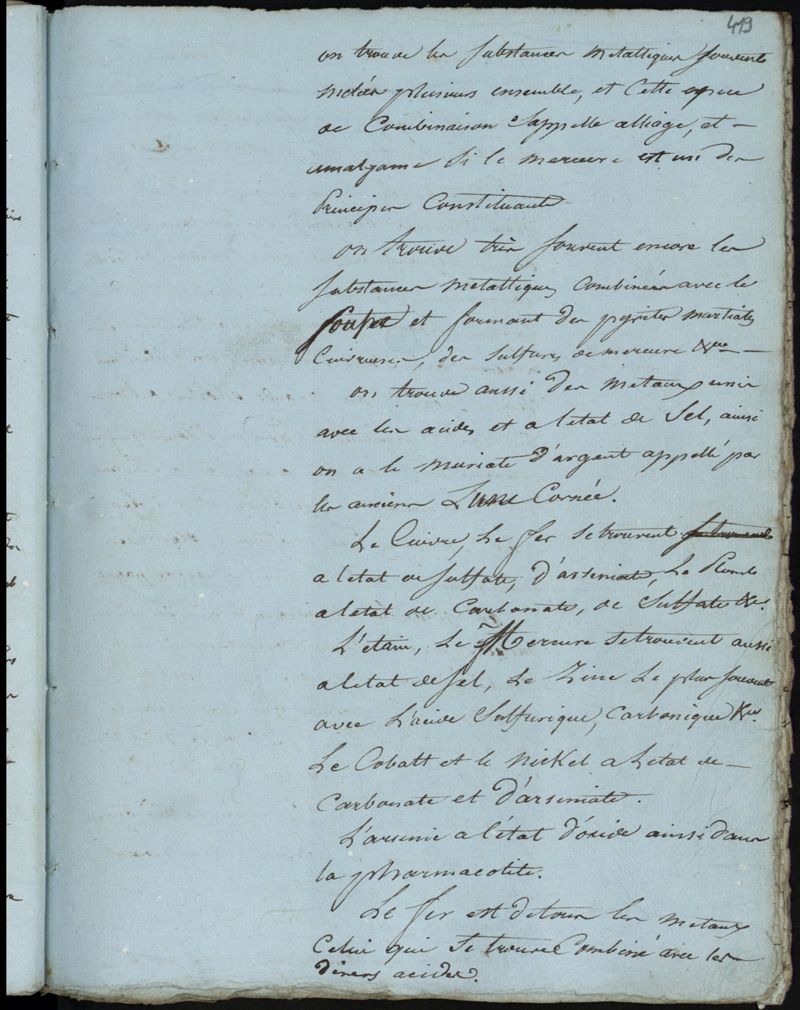 419
on trouve les substances metalliques souvent
melées plusieurs ensemble, et cette espece
de Combinaison s'appelle alliage, et -
amalgame si le mercure est un des
Principes Constituants
on trouve très souvent encore les
substances metalliques combinées avec le
soufre et formant des pyrites martiales
Cuivreuses, des sulfures de mercure &c -
on trouve aussi des metaux unis
avec les acides et a letat de Sel, ainsi
on a le muriate d'argent appellé par
les anciens Lune Cornée.
Le Cuivre, Le fer se trouvent se trouvent
a letat de sulfate, d'arseniate, Le Plomb
a letat de Carbonate, de Sulfate &c.
L'etain, Le Mercure se trouvent aussi
a letat de sel, Le Zinc Le plus souvent
avec L'acide Sulfurique, Carbonique &c
Le Cobalt et le Nickel a Letat de -
Carbonate et d'arseniate.
L'arsenic a l'état d'oxide ainsi dans
la pharmacolite.
Le fer est de tous les metaux
Celui qui se trouve Combiné avec les
divers acides.